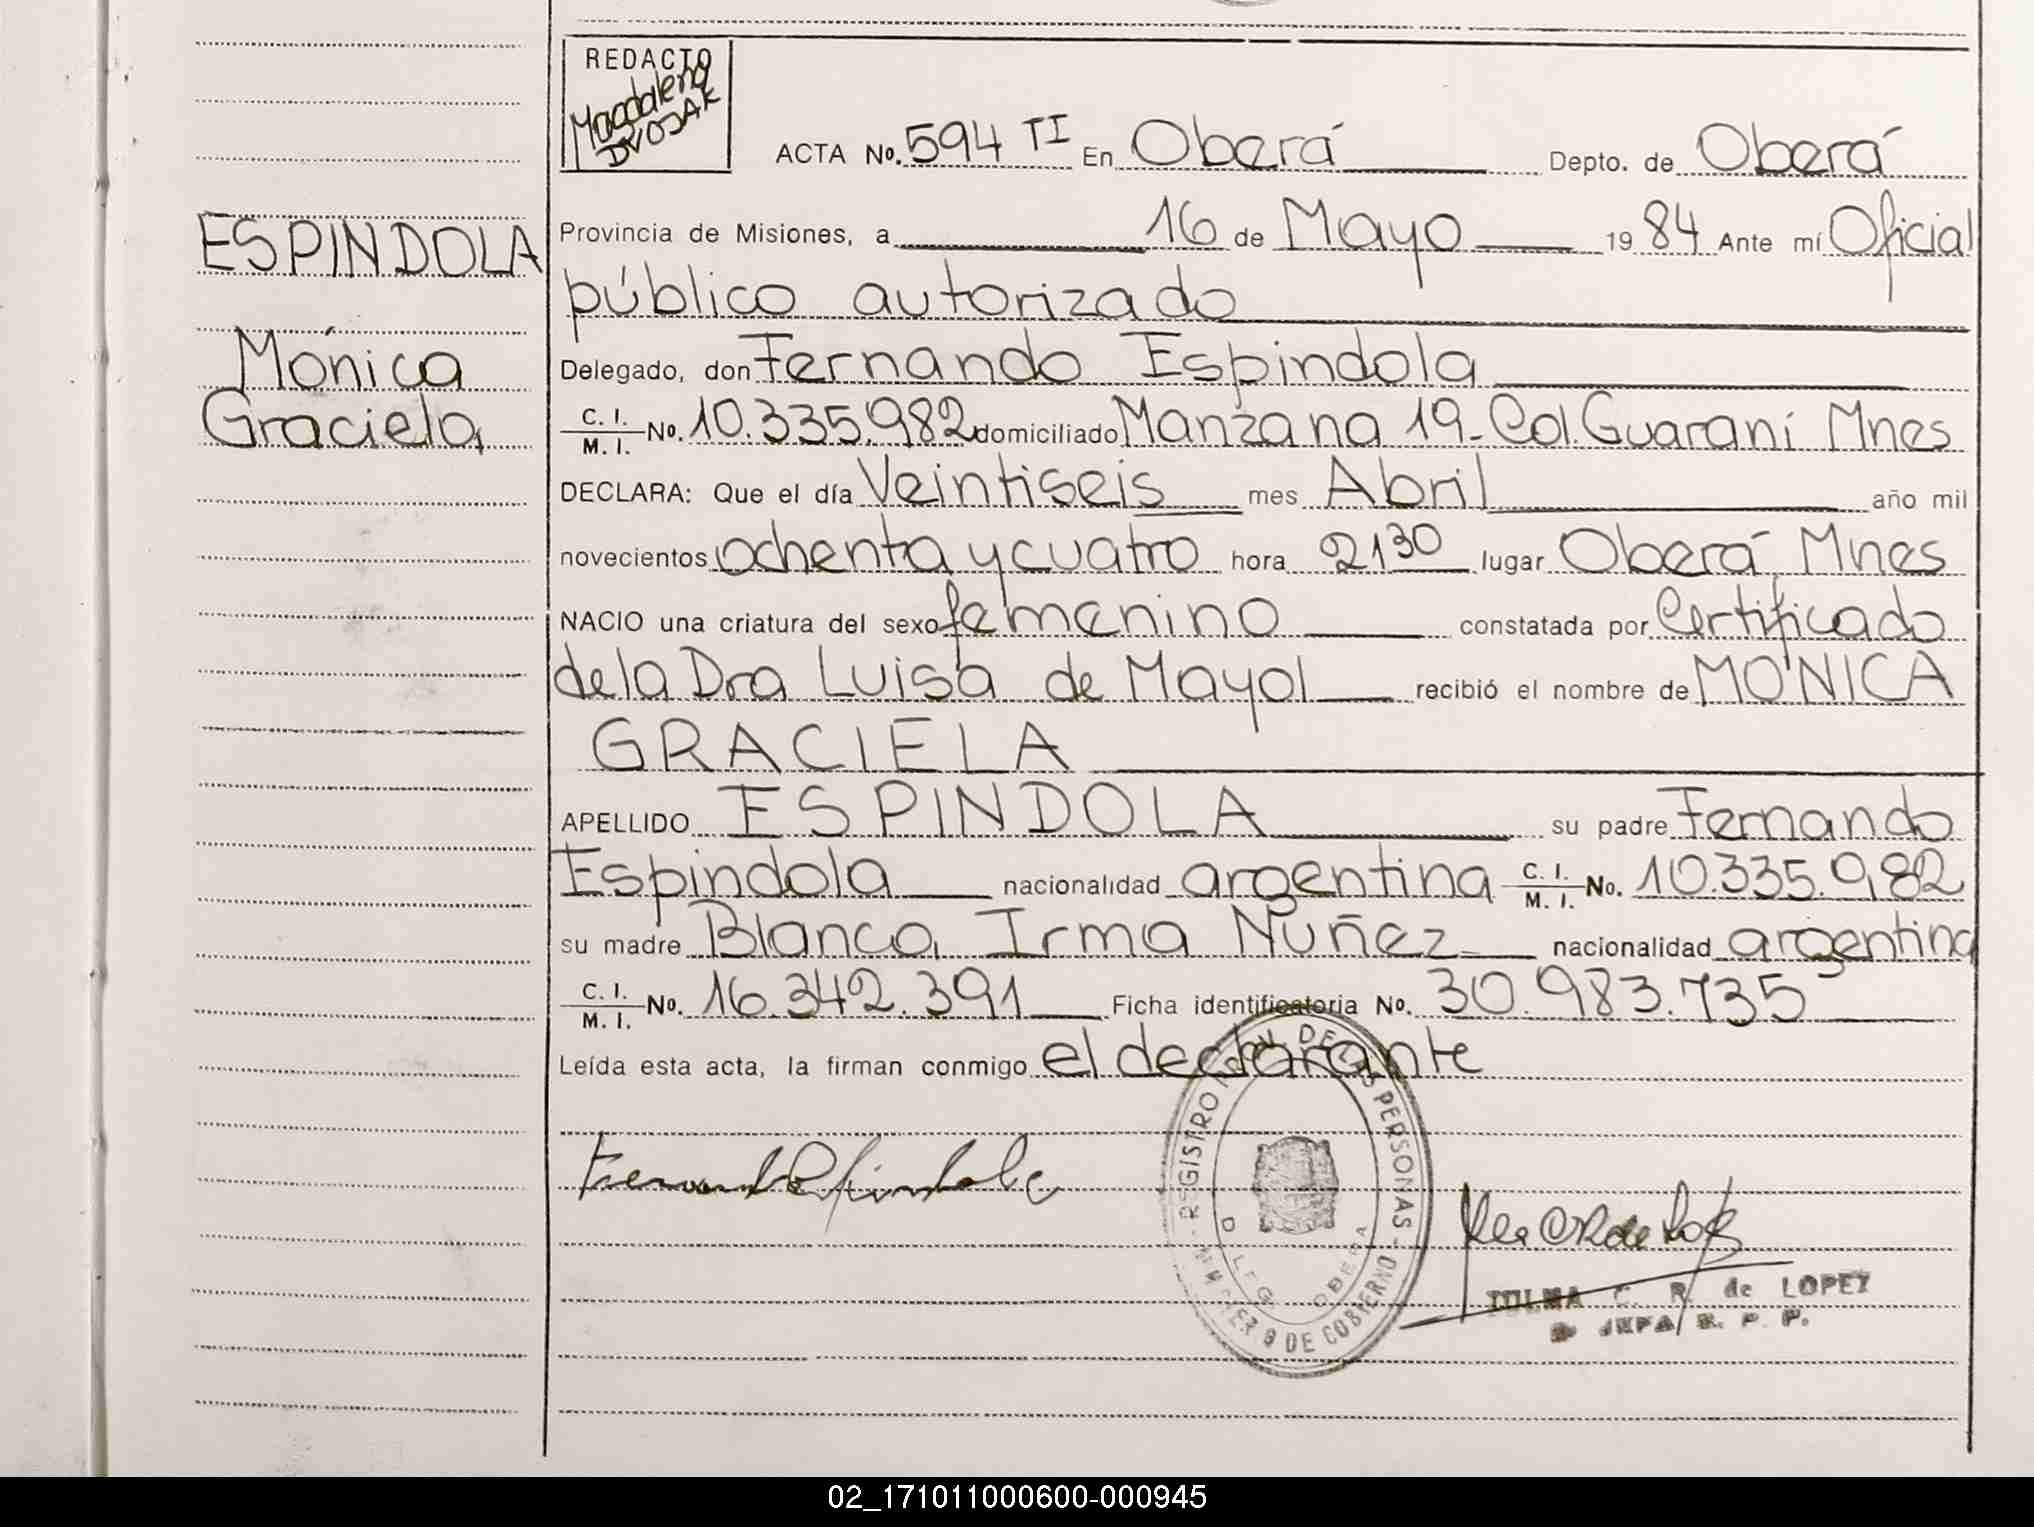 REDACTO
Magdalena
DVOJAK
ACTA No. 594 TI En Oberá Depto. de Oberá
Provincia de Misiones, a 16 de Mayo 1984 Ante mí Oficial
público autorizado
Delegado, don Fernando Espindola
C. I. / M. I. No. 10.335.982 domiciliado Manzana 19-Col. Guaraní Mnes
DECLARA: Que el día Veintiseis mes Abril año mil
novecientos ochenta y cuatro hora 2130 lugar Oberá, Mnes
NACIO una criatura del sexo femenino constatada por Certificado
de la Dra Luisa de Mayol recibió el nombre de MÓNICA
GRACIELA
APELLIDO ESPINDOLA su padre Fernando
Espindola nacionalidad argentina C. I. / M. I. No. 10.335.982
su madre Blanca Irma Nuñez nacionalidad argentina
C. I. / M. I. No. 16.342.391 Ficha identificatoria No. 30.983.735
Leída esta acta, la firman conmigo el declarante
ESPINDOLA
Mónica
Graciela
Fernando Espindola
REGISTRO DE LAS PERSONAS
DE GOBIERNO
OBERA
C. R. de LOPEZ
JEFA R. P. P.
02_171011000600-000945